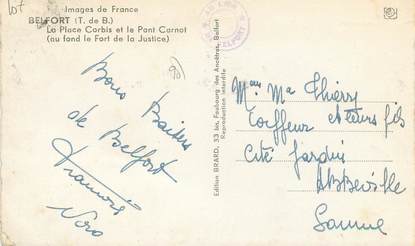 lot
Images de France
BELFORT (T. de B.)
La Place Corbis et le Pont Carnot
(au fond le Fort de la Justice)
90
Bons Baisers
de Belfort
Edition BRARD, 33 bis, Faubourg des Ancêtres, Belfort
Reproduction interdite
BELFORT
Ma Thierry
Coiffeur
fils
Cité Jardin
ABBeville
Somme